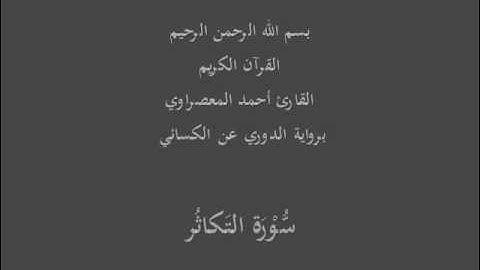 بسم الله الرحمن الرحيم
القرآن الكريم
القارئ أحمد المعصراوي
برواية الدوري عن الكسائي
سُّوْرَة التَكاثُر